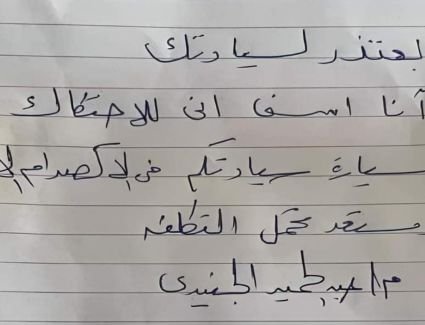 بعتذر لسيادتك
أنا اسف انى للاحتكاك
سيارة سيادتكم فى الاكصدام الا
مستعد تحمل التكلفه
م/ عبد الحميد الجنيدى